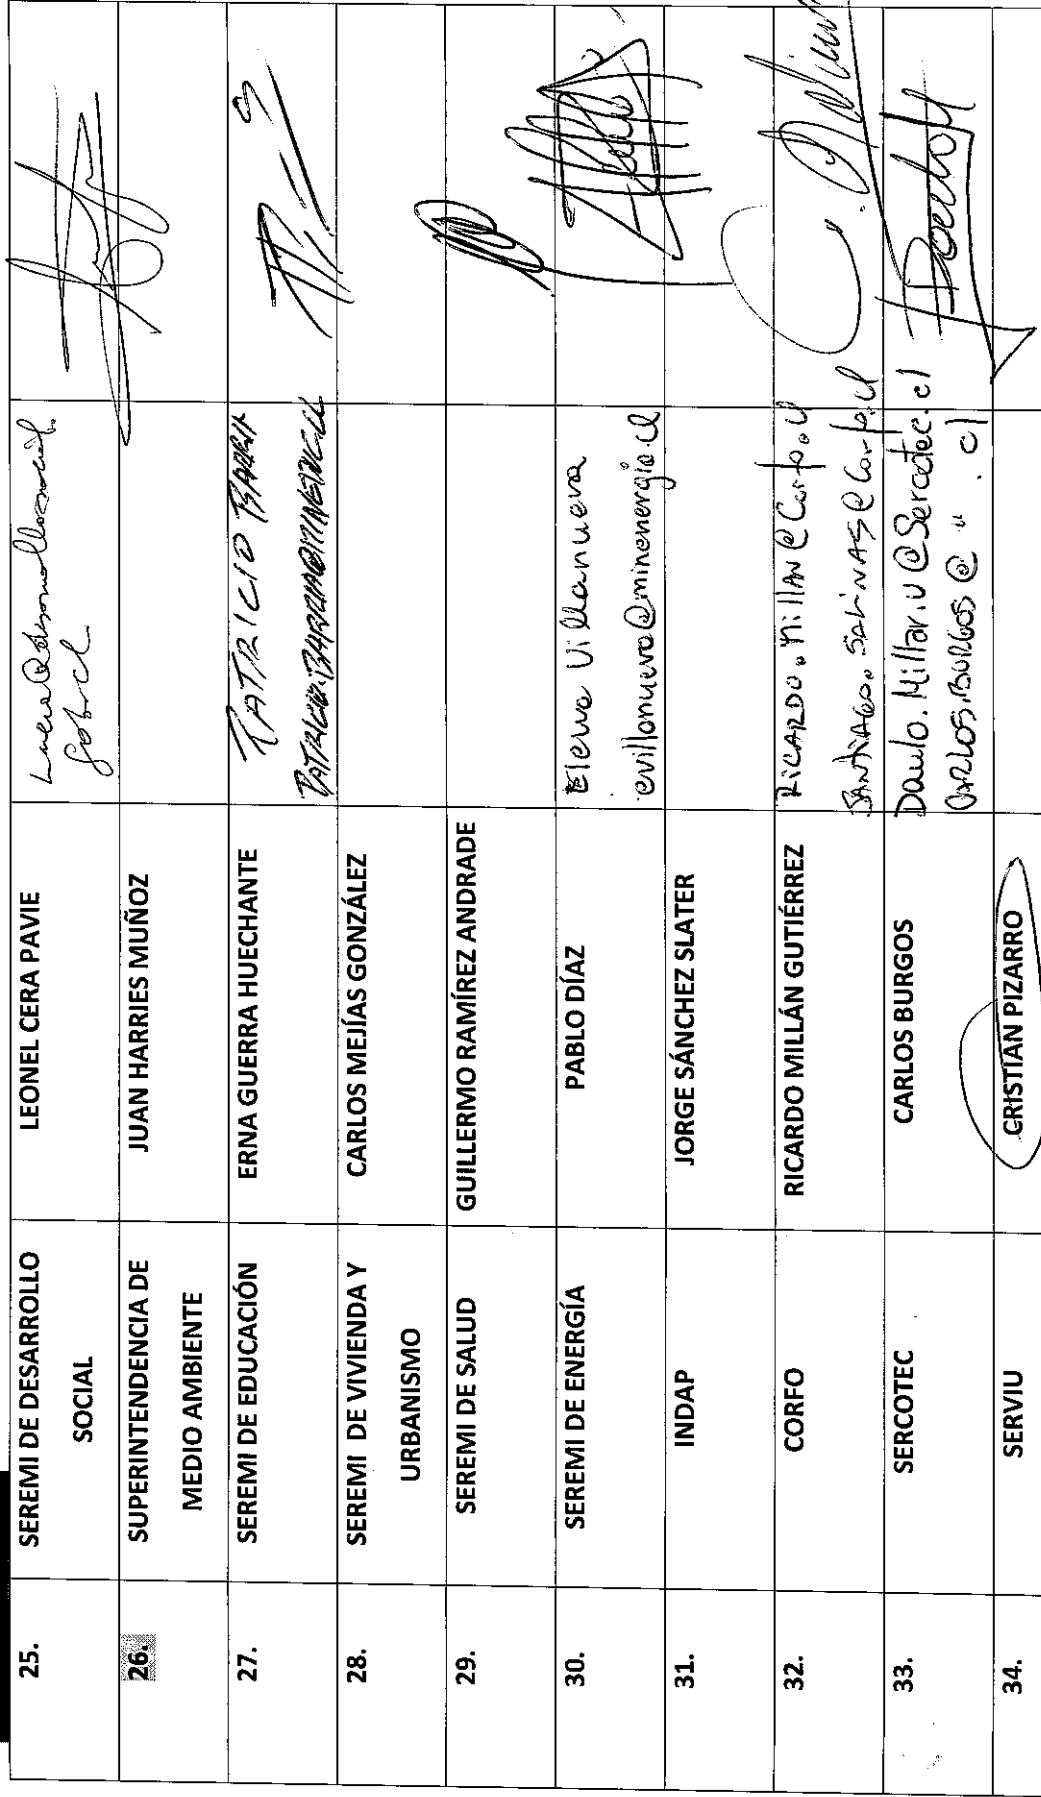 25.
SEREMI DE DESARROLLO
SOCIAL
LEONEL CERA PAVIE
26.
SUPERINTENDENCIA DE
MEDIO AMBIENTE
JUAN HARRIES MUÑOZ
27.
SEREMI DE EDUCACIÓN
ERNA GUERRA HUECHANTE
PATRICIO BARRIA
28.
SEREMI DE VIVIENDA Y
URBANISMO
CARLOS MEJÍAS GONZÁLEZ
29.
SEREMI DE SALUD
GUILLERMO RAMÍREZ ANDRADE
30.
SEREMI DE ENERGÍA
PABLO DÍAZ
Elena Villanueva
evillanueva@minenergia.cl
31.
INDAP
JORGE SÁNCHEZ SLATER
32.
CORFO
RICARDO MILLÁN GUTIÉRREZ
RICARDO.Millan@Corfo.cl
SANTIAGO.SALINAS@Corfo.cl
33.
SERCOTEC
CARLOS BURGOS
Paulo.Millar.V@Sercotec.cl
CARLOS.BURGOS@ " .cl
34.
SERVIU
CRISTIAN PIZARRO